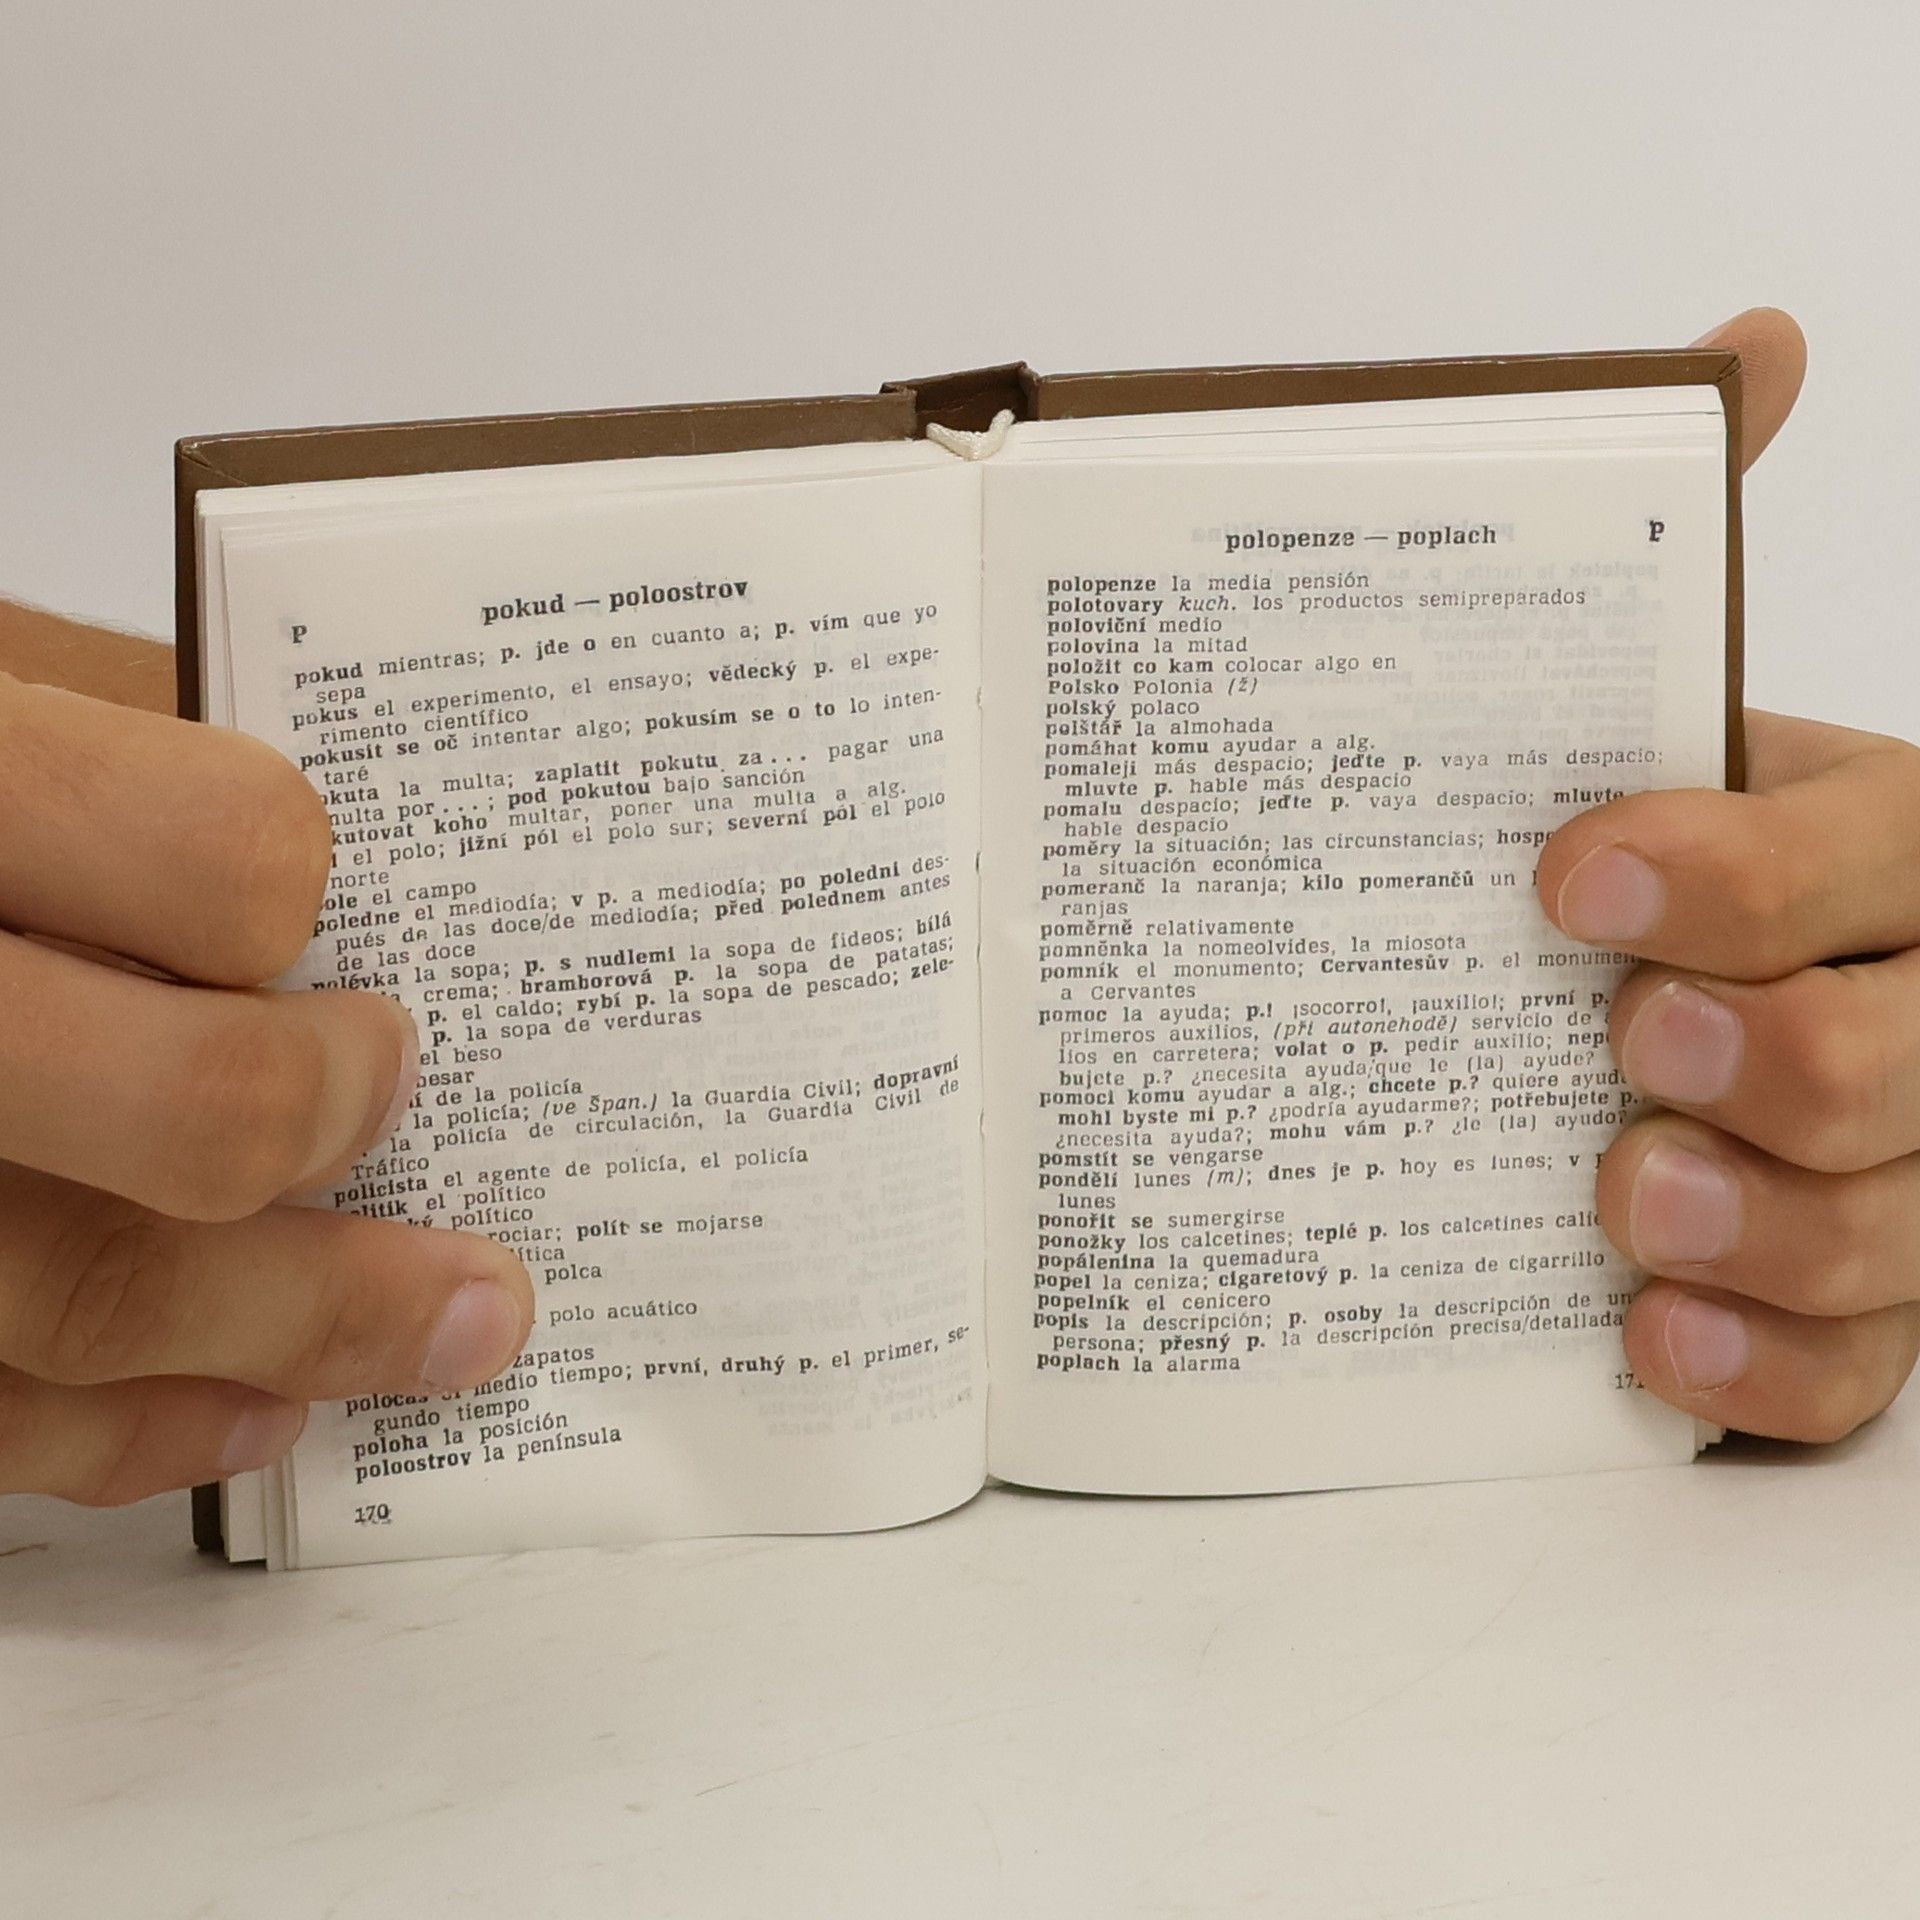 pokud — poloostrov
P
pokud mientras; p. jde o en cuanto a; p. vím que yo
sepa
pokus el experimento, el ensayo; vědecký p. el expe-
rimento científico
pokusit se oč intentar algo; pokusím se o to lo inten-
taré
la multa; zaplatit pokutu za... pagar una
por...; pod pokutou bajo sanción
koho multar, poner una multa a alg.
el polo; jižní pól el polo sur; severní pól el polo
norte
el campo
poledne el mediodía; v p. a mediodía; po poledni des-
pués de las doce/de mediodía; před polednem antes
de las doce
la sopa; p. s nudlemi la sopa de fideos; bílá
crema; bramborová p. la sopa de patatas;
p. el caldo; rybí p. la sopa de pescado; zele-
p. la sopa de verduras
el beso
besar
de la policía
la policía; (ve Špan.) la Guardia Civil; dopravní
la policía de circulación, la Guardia Civil de
Tráfico
policista el agente de policía, el policía
el político
político
rociar; polít se mojarse
polca
polo acuático
zapatos
medio tiempo; první, druhý p. el primer, se-
gundo tiempo
poloha la posición
poloostrov la península
170
polopenze — poplach
P
polopenze la media pensión
polotovary kuch. los productos semipreparados
poloviční medio
polovina la mitad
položit co kam colocar algo en
Polsko Polonia (ž)
polský polaco
polštář la almohada
pomáhat komu ayudar a alg.
pomaleji más despacio; jeďte p. vaya más despacio;
mluvte p. hable más despacio
pomalu despacio; jeďte p. vaya despacio; mluvte
hable despacio
poměry la situación; las circunstancias;
la situación económica
pomeranč la naranja; kilo pomerančů un
ranjas
poměrně relativamente
pomněnka la nomeolvides, la miosota
pomník el monumento; Cervantesův p. el
a Cervantes
pomoc la ayuda; p.! ¡socorro!, ¡auxilio!; první p.
primeros auxilios, (při autonehodě) servicio de
lios en carretera; volat o p. pedir auxilio;
bujete p.? ¿necesita ayuda/que le (la) ayude?
pomoci komu ayudar a alg.; chcete p.? quiere
mohl byste mi p.? ¿podría ayudarme?; potřebujete p.
¿necesita ayuda?; mohu vám p.? ¿le (la) ayudo?
pomstít se vengarse
pondělí lunes (m); dnes je p. hoy es lunes; v
lunes
ponořit se sumergirse
ponožky los calcetines; teplé p. los calcetines
popálenina la quemadura
popel la ceniza; cigaretový p. la ceniza de cigarrillo
popelník el cenicero
popis la descripción; p. osoby la descripción de
persona; přesný p. la descripción precisa/detallada
poplach la alarma